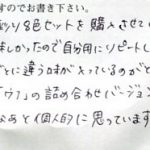 すのでお書き下さい。
彩り8色セットを購入させてい
味しかったので自分用にリピートし
ごとに違う味が入っているのがと
「ウス」の詰め合わせバージョン
なあと個人的に思っています